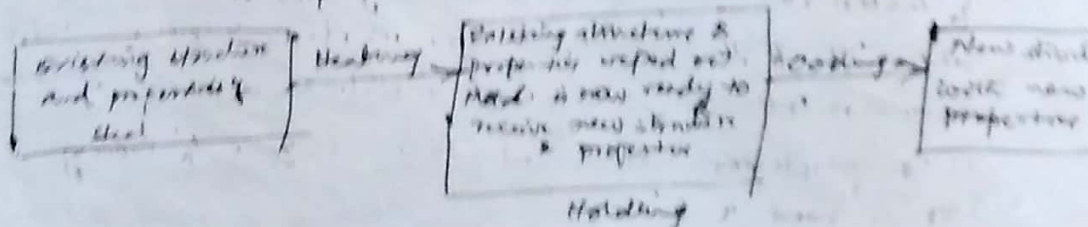 Existing structure
and properties of
steel
Heating
Existing structure &
properties wiped out.
Matl. is now ready to
receive new structure
& properties
Holding
Cooling
New
with new
properties